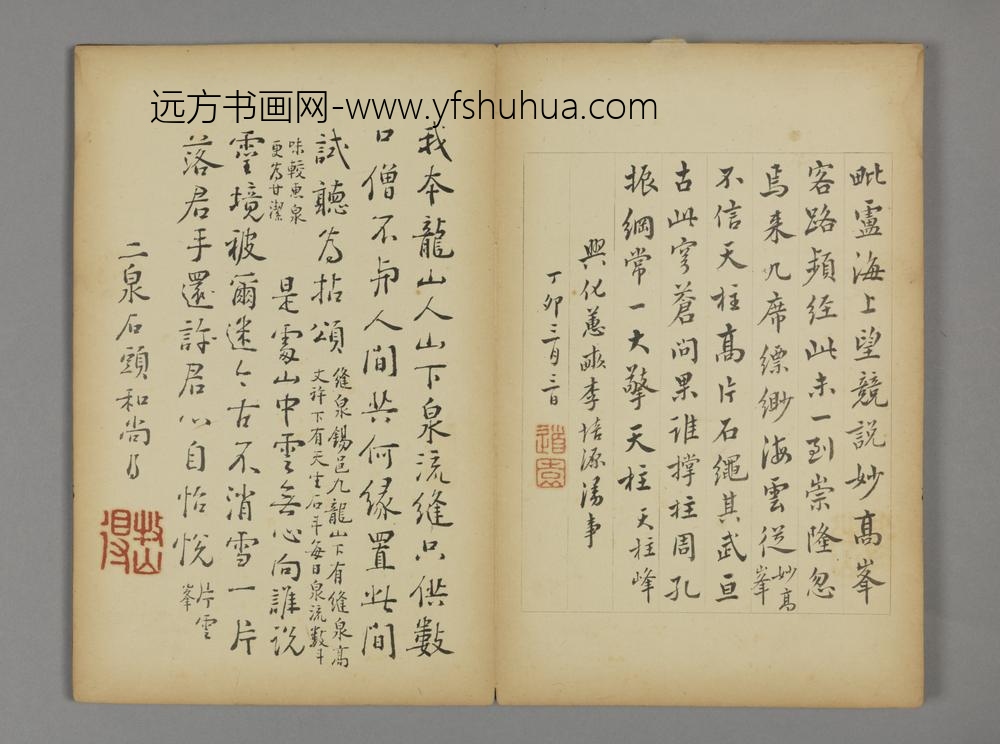 远方书画网-www.yfshuhua.com
毗盧海上望競説妙高峯
客路頻经此未一到崇隆忽
焉来几席縹缈海雲從妙高峯
不信天柱高片石繩其武亘
古此穹蒼问果谁撑柱周孔
振綱常一大擎天柱天柱峰
興化蕙畹李培源漫事
丁卯三月三日
我本龍山人山下泉流縫只供數
口僧不與人间共何缘置此间
試聽為拈頌縫泉錫邑九龍山下有縫泉高
丈許下有天生石斗每日泉流数斗
味較惠泉
更为甘潔
是雲山中雲無心向誰説
靈境被爾迷今古不消雪一片
落君手還許君心自怡悦片雲峯
二泉石頭和尚